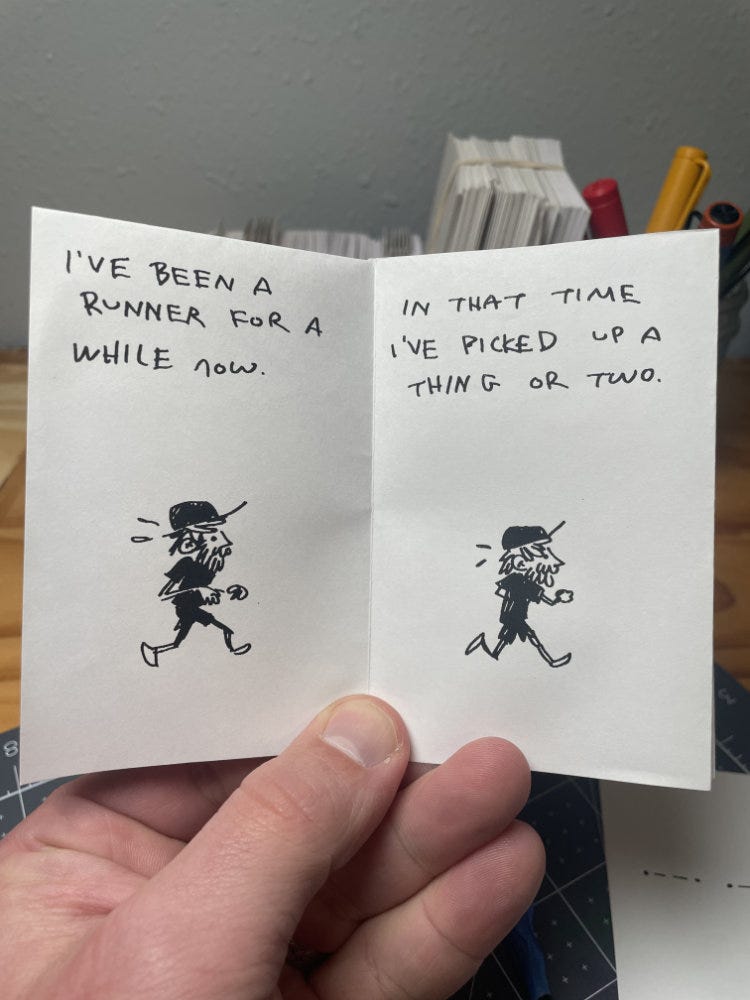 I'VE BEEN A
RUNNER FOR A
WHILE NOW.
IN THAT TIME
I'VE PICKED UP A
THING OR TWO.
8
3